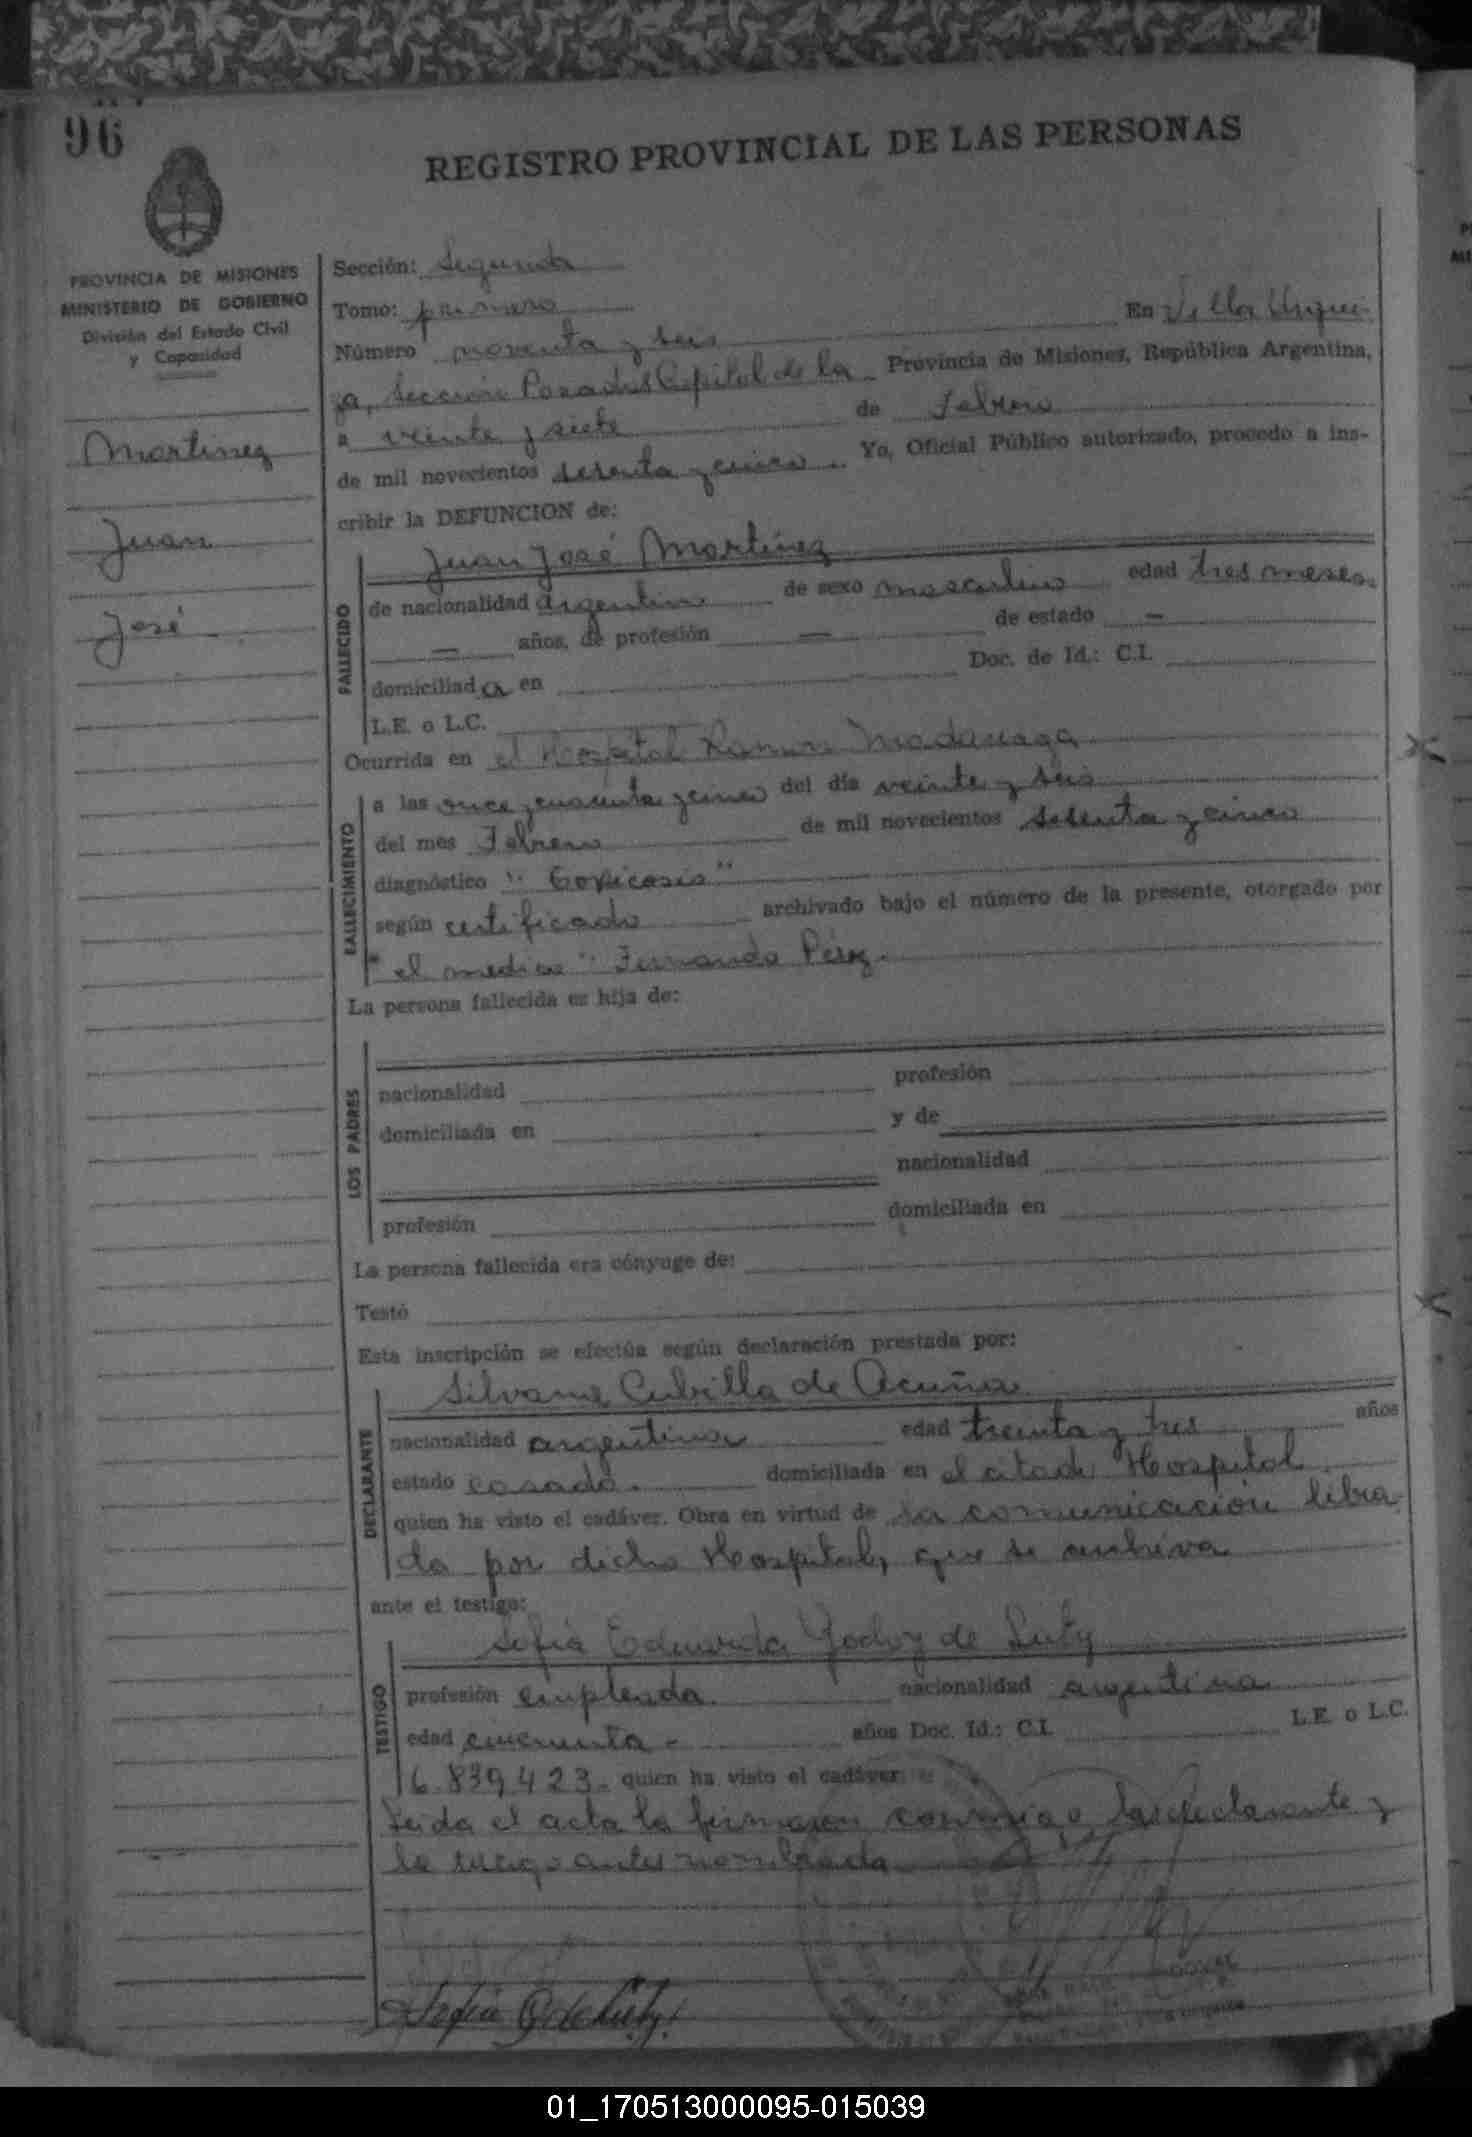 96
REGISTRO PROVINCIAL DE LAS PERSONAS
PROVINCIA DE MISIONES
MINISTERIO DE GOBIERNO
División del Estado Civil
y Capacidad
Martinez
Juan
José
Sección: Segunda
Tomo: primero
En Villa Urqui-
Número noventa y seis
za, Sección Posadas Capital de la Provincia de Misiones, República Argentina,
a veinte y siete de Febrero
de mil novecientos sesenta y cinco. Yo, Oficial Público autorizado, procedo a ins-
cribir la DEFUNCION de:
Juan José Martinez
FALLECIDO
de nacionalidad argentino de sexo masculino edad tres meses.
— años, de profesión — de estado —
domiciliada en Doc. de Id.: C.I.
L.E. o L.C.
Ocurrida en el Hospital Ramon Madariaga
FALLECIMIENTO
a las once y cuarenta y cinco del día veinte y seis
del mes Febrero de mil novecientos sesenta y cinco
diagnóstico "Toxicosis"
según certificado archivado bajo el número de la presente, otorgado por
"el medico" Fernando Pérez.
La persona fallecida es hija de:
LOS PADRES
nacionalidad profesión
domiciliada en y de
nacionalidad
profesión domiciliada en
La persona fallecida era cónyuge de:
Testó
Esta inscripción se efectúa según declaración prestada por:
Silvana Cubilla de Acuña
DECLARANTE
nacionalidad argentina edad treinta y tres años
estado casada. domiciliada en el citado Hospital
quien ha visto el cadáver. Obra en virtud de la comunicación libra-
da por dicho Hospital, que se archiva
ante el testigo:
Sofia Eduarda Godoy de Luty
TESTIGO
profesión empleada nacionalidad argentina
edad cincuenta - años Doc. Id.: C.I. L.E. o L.C.
6.839.423. quien ha visto el cadáver
Leida el acta la firmaron conmigo la declarante y
la testigo antes nombrada
Sofia G de Luty
01_170513000095-015039